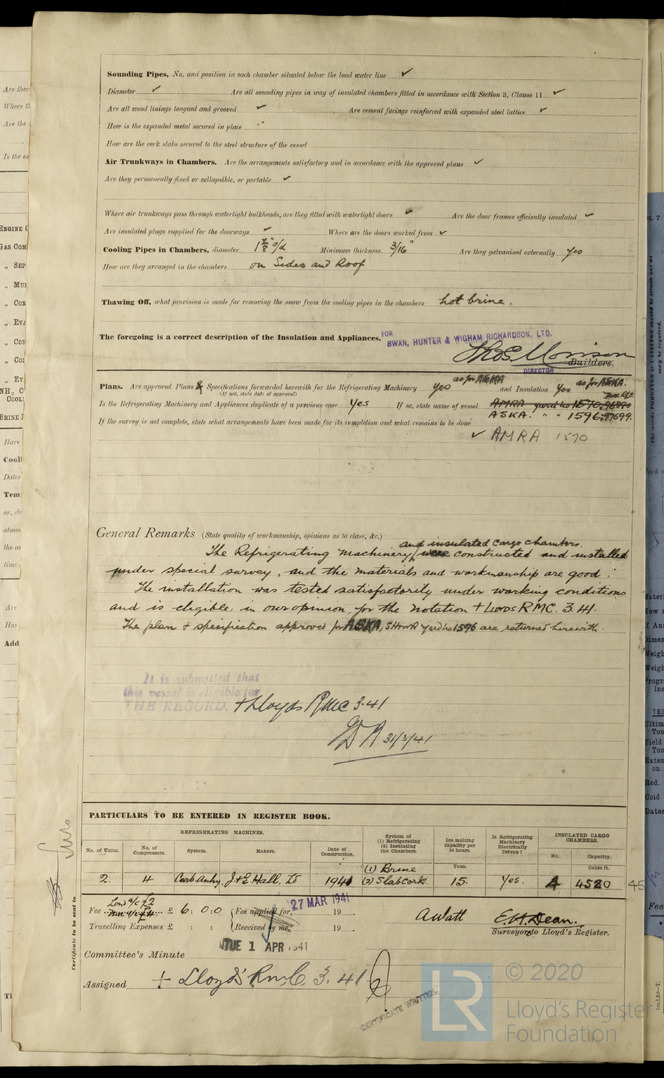 Sounding Pipes, No. and position in each chamber situated below the load water line ✓
Diameter ✓ Are all sounding pipes in way of insulated chambers fitted in accordance with Section 3, Clause 11 ✓
Are all wood linings tongued and grooved ✓ Are cement facings reinforced with expanded steel lattice ✓
How is the expanded metal secured in place
How are the cork slabs secured to the steel structure of the vessel
Air Trunkways in Chambers. Are the arrangements satisfactory and in accordance with the approved plans ✓
Are they permanently fixed or collapsible, or portable ✓
Where air trunkways pass through watertight bulkheads, are they fitted with watertight doors ✓ Are the door frames efficiently insulated ✓
Are insulated plugs supplied for the doorways ✓ Where are the doors worked from ✓
Cooling Pipes in Chambers, diameter o/d Minimum thickness 3/16" Are they galvanised externally yes
How are they arranged in the chambers on Sides and Roof
Thawing Off, what provision is made for removing the snow from the cooling pipes in the chambers hot brine.
The foregoing is a correct description of the Insulation and Appliances,
FOR
SWAN, HUNTER & WIGHAM RICHARDSON, LTD.
DIRECTOR
Builders.
Plans. Are approved Plans & Specifications forwarded herewith for the Refrigerating Machinery yes as for ASKA and Insulation yes as for ASKA.
(If not, state date of approval)
Is the Refrigerating Machinery and Appliances duplicate of a previous case Yes If so, state name of vessel AMRA yard no 1570
ASKA. " " 1596
If the survey is not complete, state what arrangements have been made for its completion and what remains to be done
✓ AMRA 1570
General Remarks (State quality of workmanship, opinions as to class, &c.)
and insulated cargo chambers.
The Refrigerating machinery were constructed and installed
under special survey, and the materials and workmanship are good.
The installation was tested satisfactorily under working conditions
and is eligible in our opinion for the notation + Lloyds RMC. 3.41.
The plan + specification approved for ASKA, SHWR yard no 1596 are returned herewith.
It is submitted that
this vessel is eligible for
THE RECORD. + Lloyds RMC 3.41
31/3/41
PARTICULARS TO BE ENTERED IN REGISTER BOOK.
REFRIGERATING MACHINES.
No. of Units. No. of Compressors. System. Makers. Date of Construction. System of (1) Refrigerating (2) Insulating the Chambers. Ice melting capacity per 24 hours. Is Refrigerating Machinery Electrically Driven? INSULATED CARGO CHAMBERS.
No. Capacity.
Tons. Cubic ft.
(1) Brine
2 4 Carb Anhy. J & E Hall, Ld 1941 (2) Slab Cork 15. Yes. 4 4520
Fee £ 6 : 0 : 0 Fee applied for, 27 MAR 1941 19
Travelling Expenses £ : : Received by me, 19
A Watt E. H. Dean.
Surveyors to Lloyd's Register.
TUE 1 APR 1941
Committee's Minute
Assigned + Lloyd's RMC. 3.41
CERTIFICATE WRITTEN
Certificate to be sent to
LR
© 2020
Lloyd's Register
Foundation